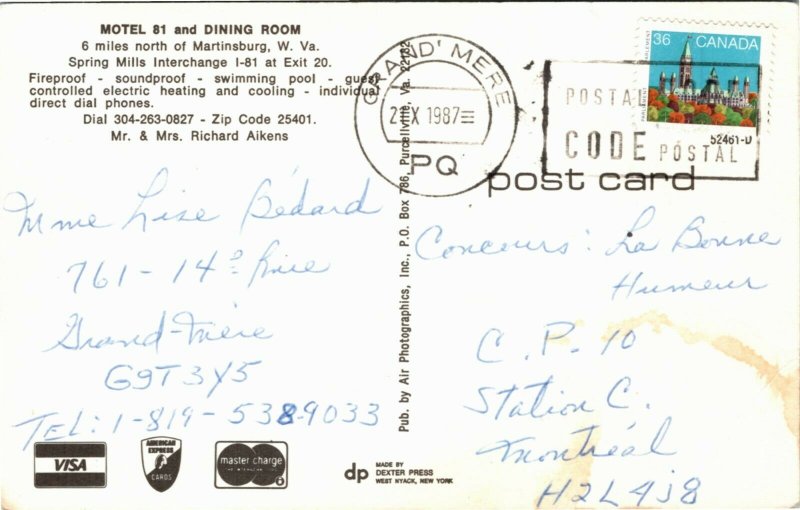 MOTEL 81 and DINING ROOM
6 miles north of Martinsburg, W. Va.
Spring Mills Interchange I-81 at Exit 20.
Fireproof - soundproof - swimming pool - guest
controlled electric heating and cooling - individual
direct dial phones.
Dial 304-263-0827 - Zip Code 25401.
Mr. & Mrs. Richard Aikens
Mme Lise Bédard
761-14e Rue
Grand-Mère
G9T3Y5
TEL: 1-819-5389033
VISA
AMERICAN EXPRESS
CARDS
master charge
THE INTERBANK CARD
Pub. by Air Photographics, Inc., P.O. Box 786, Purcellville, Va. 22132
dp
MADE BY
DEXTER PRESS
WEST NYACK, NEW YORK
GRAND' MERE
X 1987
PQ
POSTAL
CODE POSTAL
36 CANADA
52461-D
post card
Concours: La Bonne
Humeur
C.P. 10
Station C.
Montréal
H2L4J8